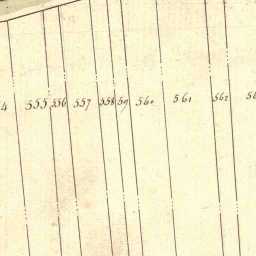 4 555 556 557 558 59 560 561 562 56